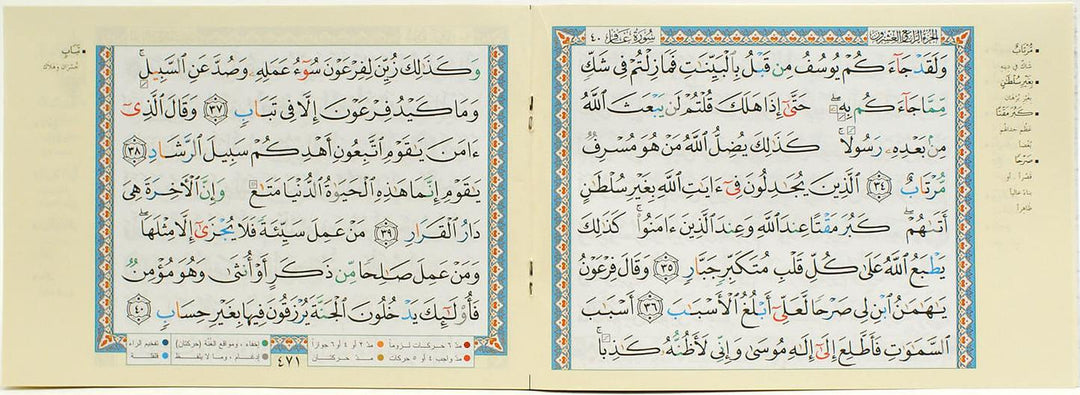 الجزء الرابع والعشرون
سورة غافر ٤٠
وَلَقَدْ جَآءَكُمْ يُوسُفُ مِن قَبْلُ بِٱلْبَيِّنَٰتِ فَمَا زِلْتُمْ فِى شَكٍّ
مِّمَّا جَآءَكُم بِهِۦ ۖ حَتَّىٰٓ إِذَا هَلَكَ قُلْتُمْ لَن يَبْعَثَ ٱللَّهُ
مِنۢ بَعْدِهِۦ رَسُولًا ۚ كَذَٰلِكَ يُضِلُّ ٱللَّهُ مَنْ هُوَ مُسْرِفٌ
مُّرْتَابٌ ﴿٣٤﴾ ٱلَّذِينَ يُجَٰدِلُونَ فِىٓ ءَايَٰتِ ٱللَّهِ بِغَيْرِ سُلْطَٰنٍ
أَتَىٰهُمْ ۖ كَبُرَ مَقْتًا عِندَ ٱللَّهِ وَعِندَ ٱلَّذِينَ ءَامَنُوا۟ ۚ كَذَٰلِكَ
يَطْبَعُ ٱللَّهُ عَلَىٰ كُلِّ قَلْبِ مُتَكَبِّرٍ جَبَّارٍ ﴿٣٥﴾ وَقَالَ فِرْعَوْنُ
يَٰهَٰمَٰنُ ٱبْنِ لِى صَرْحًا لَّعَلِّىٓ أَبْلُغُ ٱلْأَسْبَٰبَ ﴿٣٦﴾ أَسْبَٰبَ
ٱلسَّمَٰوَٰتِ فَأَطَّلِعَ إِلَىٰٓ إِلَٰهِ مُوسَىٰ وَإِنِّى لَأَظُنُّهُۥ كَٰذِبًا ۚ
مُّرْتَابٌ
شاكٌّ في دينه
بِغَيْرِ سُلْطَٰنٍ
بغير برهان
كَبُرَ مَقْتًا
عظُم جدالهم
بُغضاً
صَرْحًا
قصْراً . أو
بناءً عالياً
ظاهراً
وَكَذَٰلِكَ زُيِّنَ لِفِرْعَوْنَ سُوٓءُ عَمَلِهِۦ وَصُدَّ عَنِ ٱلسَّبِيلِ ۚ
وَمَا كَيْدُ فِرْعَوْنَ إِلَّا فِى تَبَابٍ ﴿٣٧﴾ وَقَالَ ٱلَّذِىٓ
ءَامَنَ يَٰقَوْمِ ٱتَّبِعُونِ أَهْدِكُمْ سَبِيلَ ٱلرَّشَادِ ﴿٣٨﴾
يَٰقَوْمِ إِنَّمَا هَٰذِهِ ٱلْحَيَوٰةُ ٱلدُّنْيَا مَتَٰعٌ وَإِنَّ ٱلْءَاخِرَةَ هِىَ
دَارُ ٱلْقَرَارِ ﴿٣٩﴾ مَنْ عَمِلَ سَيِّئَةً فَلَا يُجْزَىٰٓ إِلَّا مِثْلَهَا ۖ
وَمَنْ عَمِلَ صَٰلِحًا مِّن ذَكَرٍ أَوْ أُنثَىٰ وَهُوَ مُؤْمِنٌ
فَأُو۟لَٰٓئِكَ يَدْخُلُونَ ٱلْجَنَّةَ يُرْزَقُونَ فِيهَا بِغَيْرِ حِسَابٍ ﴿٤٠﴾
تَبَابٍ
خُسران وهلاك
مدّ ٦ حركات لزوماً
مدّ ٢ أو ٤ أو ٦ جوازاً
مدّ واجب ٤ أو ٥ حركات
مدّ حركتان
٤٧١
إخفاء، ومواقع الغُنَّة (حركتان)
إدغام، وما لا يُلفظ
تفخيم الراء
قلقلة